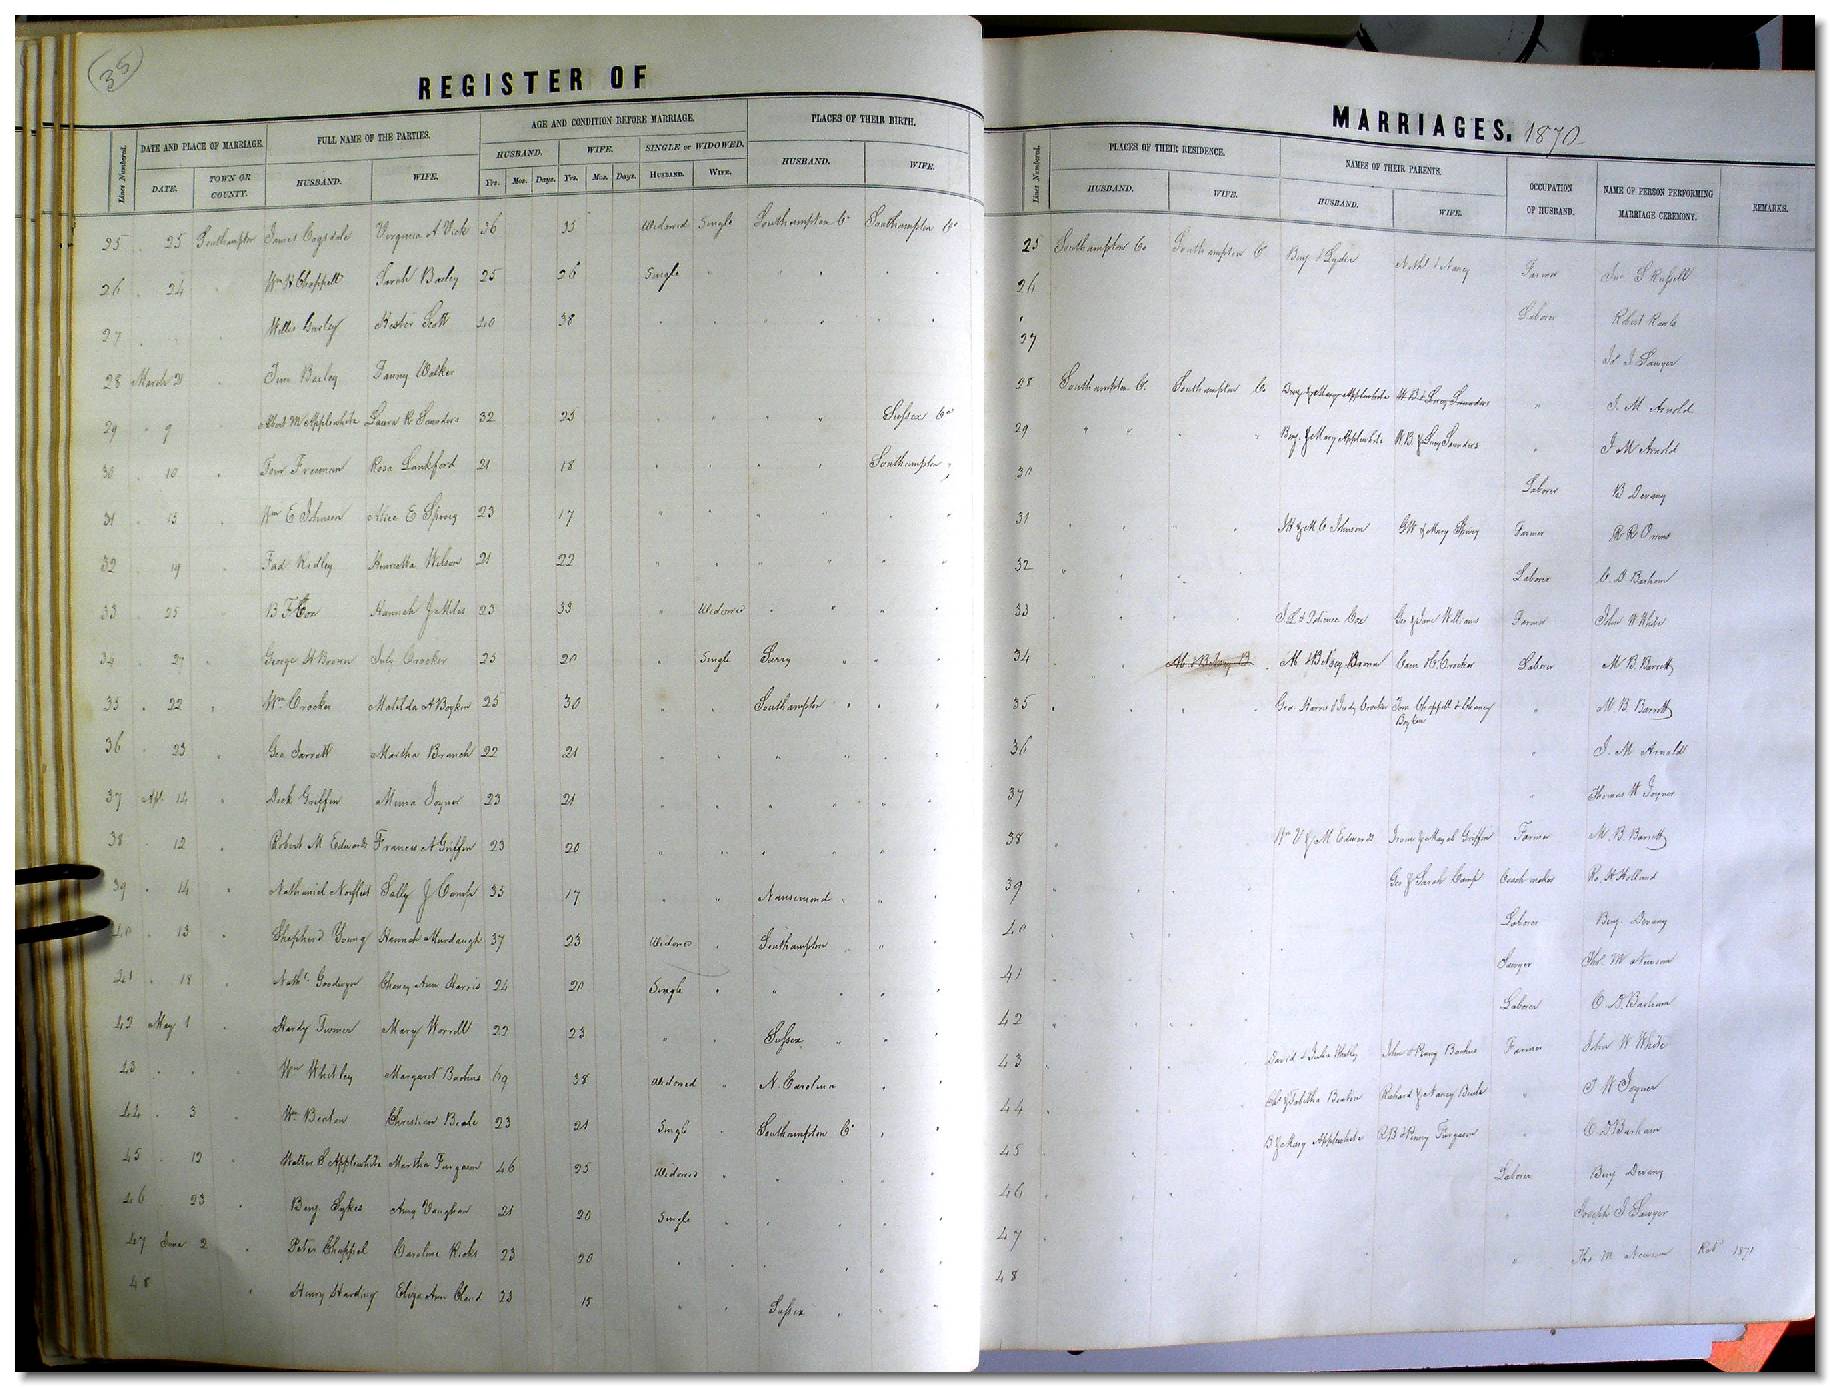 35
REGISTER OF
Lines Numbered. DATE AND PLACE OF MARRIAGE. FULL NAME OF THE PARTIES. AGE AND CONDITION BEFORE MARRIAGE. PLACES OF THEIR BIRTH.
HUSBAND. WIFE. SINGLE or WIDOWED.
DATE. TOWN OR COUNTY. HUSBAND. WIFE. Yrs. Mos. Days. Yrs. Mos. Days. HUSBAND. WIFE. HUSBAND. WIFE.
25 25 Southampton James Cogsdale Virginia A Vick 36 35 Widowed Single Southampton Co Southampton Co
26 24 Wm H Chappell Sarah Bailey 25 26 Single
27 Willis Gurley Hester Scott 40 38
28 March 21 Jim Bailey Fanny Walker
29 9 Albert M Applewhite Laura R Saunders 32 25 Sussex Co
30 10 Tom Freeman Rosa Lankford 21 18 Southampton
31 15 Wm E Johnson Alice E Spivey 23 17
32 19 Fad Ridley Henrietta Wilson 21 22
33 25 Hannah 23 33 Widowed
34 27 George H Bowen July Crocker 25 20 Single Surry
35 22 Wm Crocker Matilda A Boykin 25 30 Southampton
36 23 Geo Jarrett Martha Branch 22 21
37 Apl 14 Dick Griffin Joyner 23 21
38 12 Robert M Edwards Frances A Griffin 23 20
39 14 Nathaniel Norfleet Sally J Camp 35 17 Nansemond
40 13 Shepherd Young Hannah Murdaugh 37 23 Widowed Southampton
41 18 Nathl Goodwyn Chaney Ann Harris 24 20 Single
42 May 1 Hardy Turner Mary Worrell 22 23 Sussex
43 Wm Whitley Margaret Barkus 69 38 Widowed N. Carolina
44 3 Wm Beaton Christian Beale 23 21 Single Southampton Co
45 12 Walter S Applewhite Martha Furgason 46 25 Widowed
46 23 Benj Sykes Amy Vaughan 21 20 Single
47 June 2 Peter Chappel Caroline Ricks 23 20
48 Henry Harding Eliza Ann Claud 23 18 Sussex
MARRIAGES. 1870
Lines Numbered. PLACES OF THEIR RESIDENCE. NAMES OF THEIR PARENTS. OCCUPATION OF HUSBAND. NAME OF PERSON PERFORMING MARRIAGE CEREMONY. REMARKS.
HUSBAND. WIFE. HUSBAND. WIFE.
25 Southampton Co Southampton Co Benj & Lydia Nathl & Nancy Farmer Jno L Russell
26 Laborer Robert
27 Jos J Sawyer
28 Southampton Co Southampton Co Benj & Mary Applewhite W B & Lucy Saunders J. M Arnold
29 Benj & Mary Applewhite W B & Lucy Saunders J M Arnold
30 Laborer B Devany
31 J W & M C Johnson G W & Mary Spivey Farmer R R Owens
32 Laborer C. D Barham
33 Cox Geo & Jane Williams Farmer John W White
34 Ab & Betsey B Ab & Betsey Bowen Crocker Laborer M B. Barrett
35 Geo Harris & Judy Crocker Tom Chappell & Chaney Boykin M B. Barrett
36 J. M Arnold
37 Thomas W Joyner
38 Wm & M Edwards Griffin Farmer M. B. Barrett
39 Geo & Sarah Camp Coach maker Ro. H Holland
40 Laborer Benj. Devany
41 Sawyer Tho. M Newsom
42 Laborer C. D. Barham
43 David & Whitley John & Barkus Farmer John W White
44 & Tabitha Beaton Richard & Nancy Beale J W Joyner
45 B & Mary Applewhite R B & Furgason C D Barham
46 Laborer Benj Devany
47 Joseph J Sawyer
48 Tho M Newsom 1871